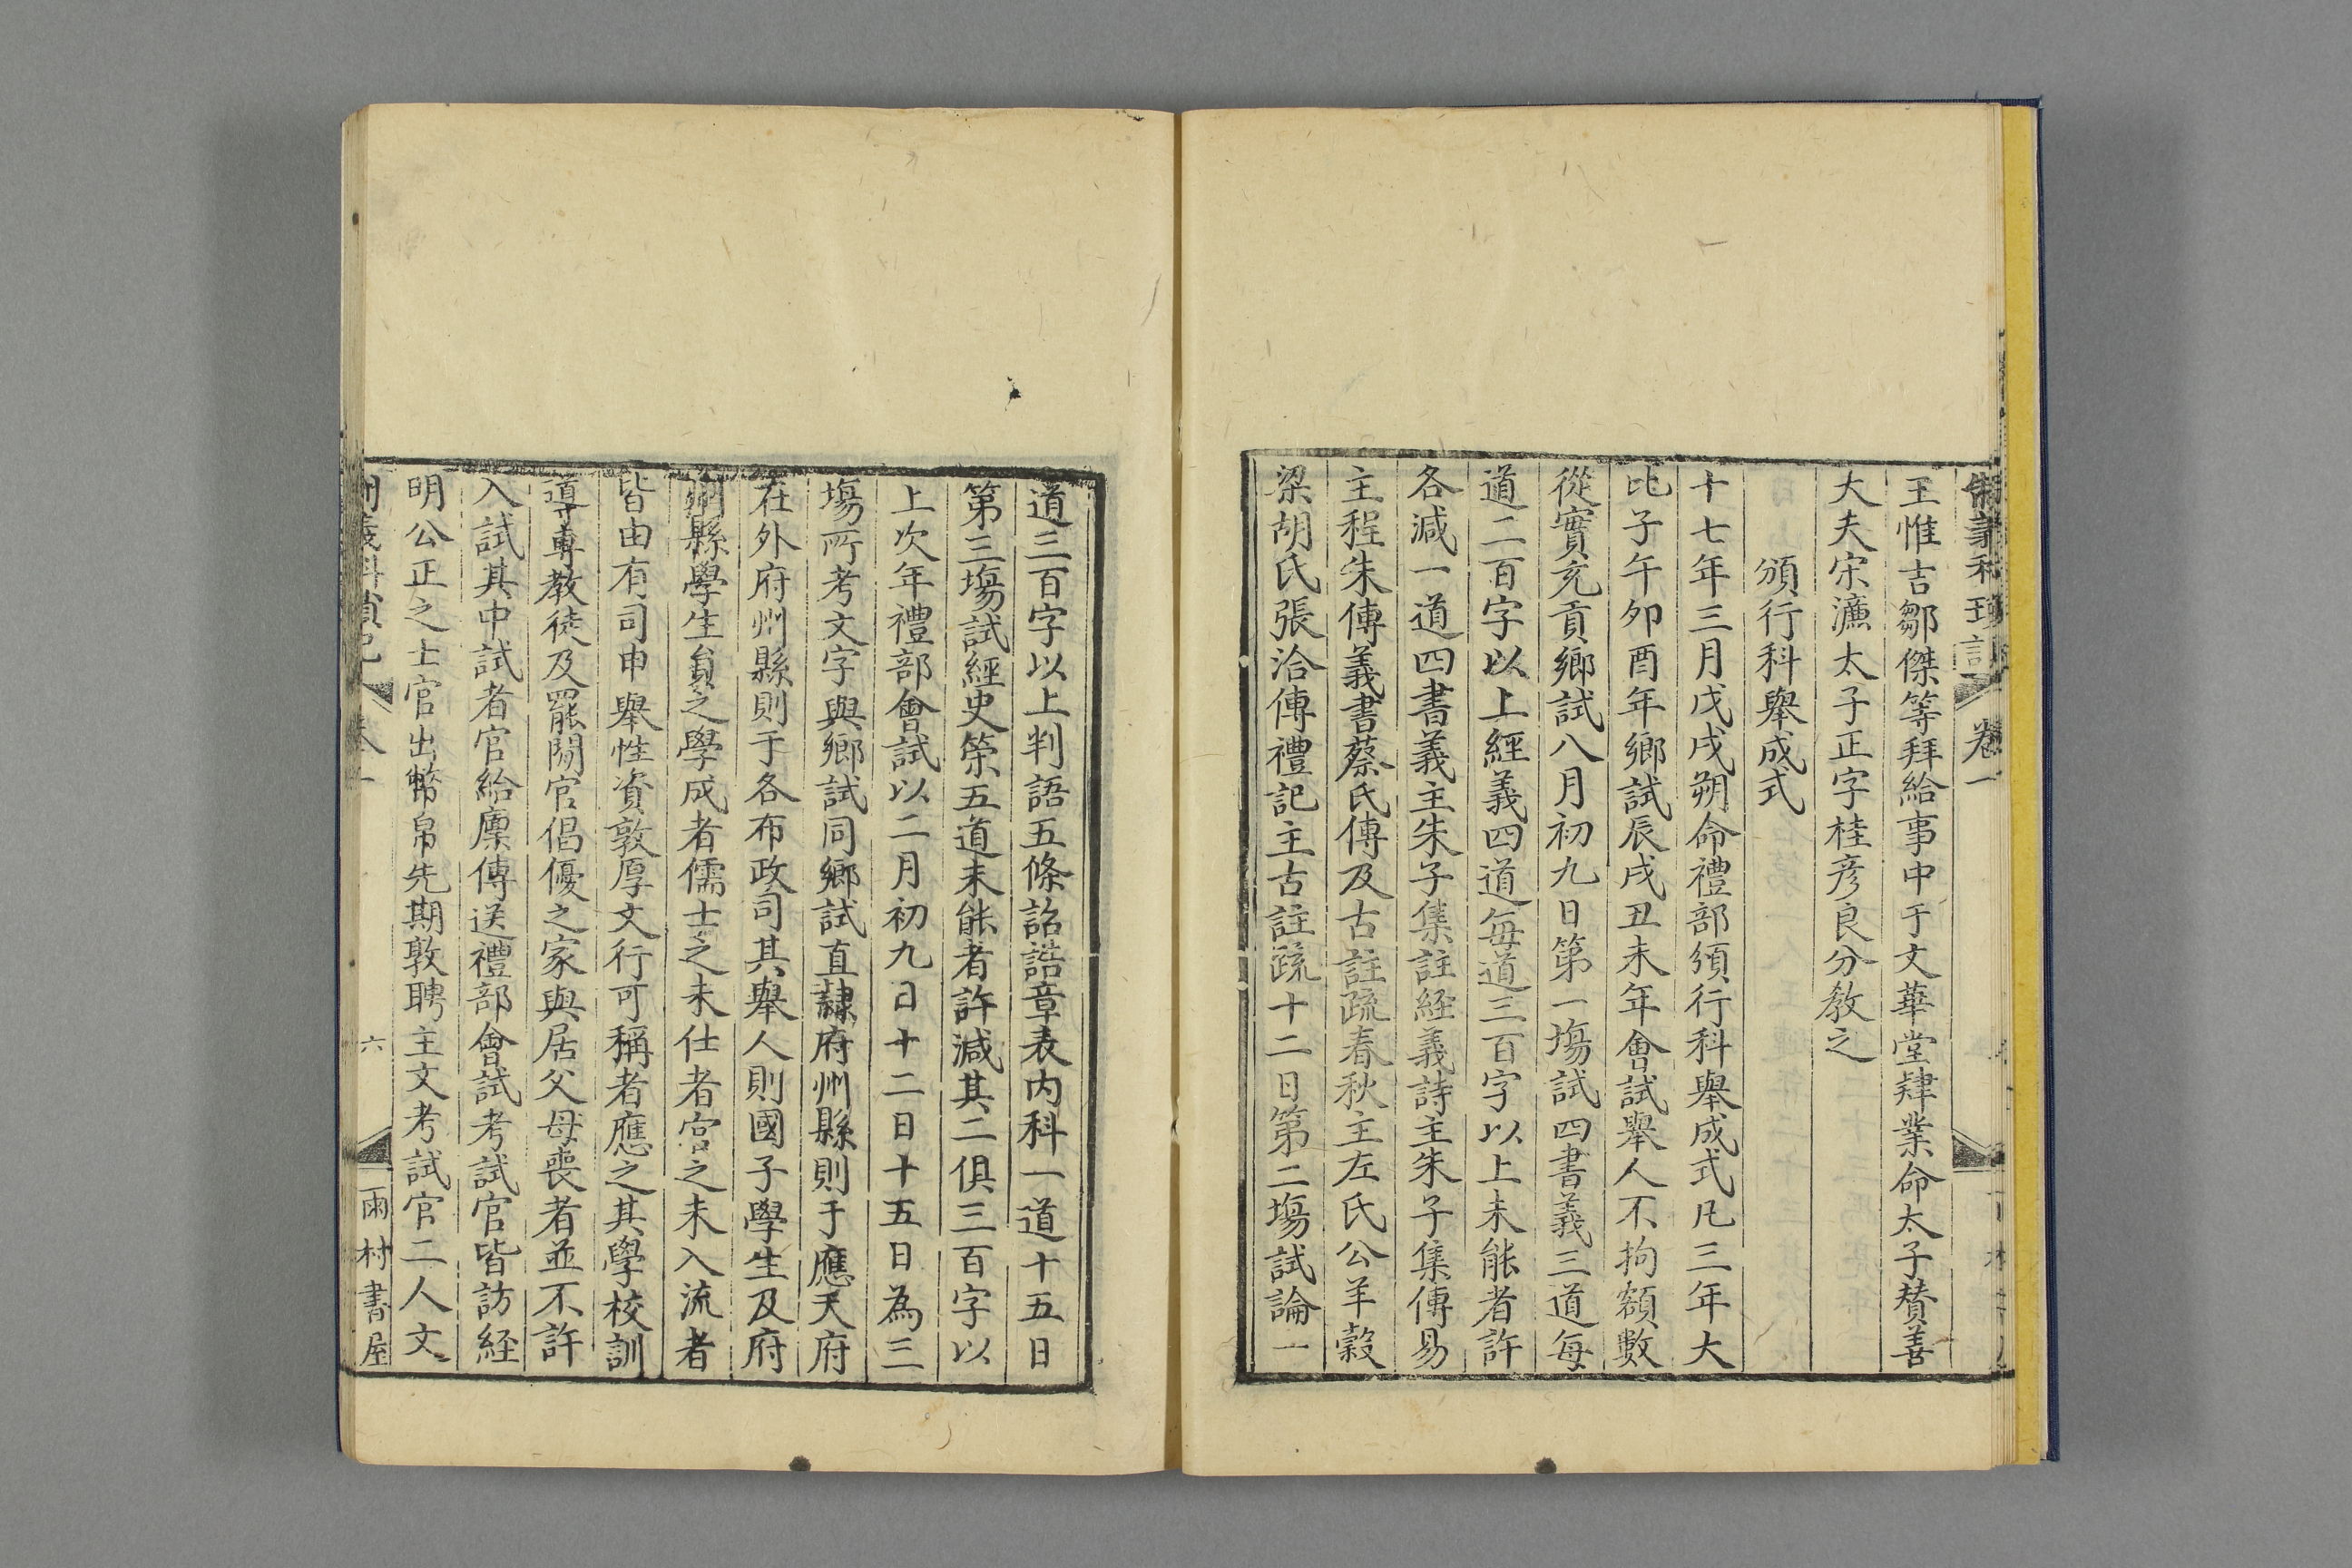 制義科瑣記 卷一
王惟吉鄒傑等拜給事中于文華堂肄業命太子賛善
大夫宋濂太子正字桂彦良分教之
頒行科舉成式
十七年三月戊戌朔命禮部頒行科舉成式凡三年大
比子午卯酉年鄉試辰戌丑未年會試舉人不拘額數
從實充貢鄉試八月初九日第一塲試四書義三道每
道二百字以上經義四道每道三百字以上未能者許
各減一道四書義主朱子集註経義詩主朱子集傳易
主程朱傳義書蔡氏傳及古註疏春秋主左氏公羊穀
梁胡氏張洽傳禮記主古註疏十二日第二塲試論一
道三百字以上判語五條詔誥章表内科一道十五日
第三塲試經史策五道未能者許減其二俱三百字以
上次年禮部會試以二月初九日十二日十五日為三
塲所考文字與鄉試同鄉試直隸府州縣則于應天府
在外府州縣則于各布政司其舉人則國子學生及府
州縣學生貟之學成者儒士之未仕者官之未入流者
皆由有司申舉性資敦厚文行可稱者應之其學校訓
導專教徒及罷閑官倡優之家與居父母喪者並不許
入試其中試者官給廩傳送禮部會試考試官皆訪経
明公正之士官出幣帛先期敦聘主文考試官二人文
制義科瑣記 卷一 六 雨村書屋